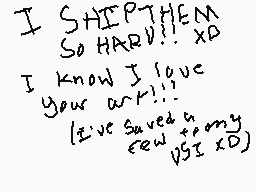 I SHIP THEM
SO HARD!! XD
I know I love
your art!!!
(I've saved a
few to my
DSI XD)